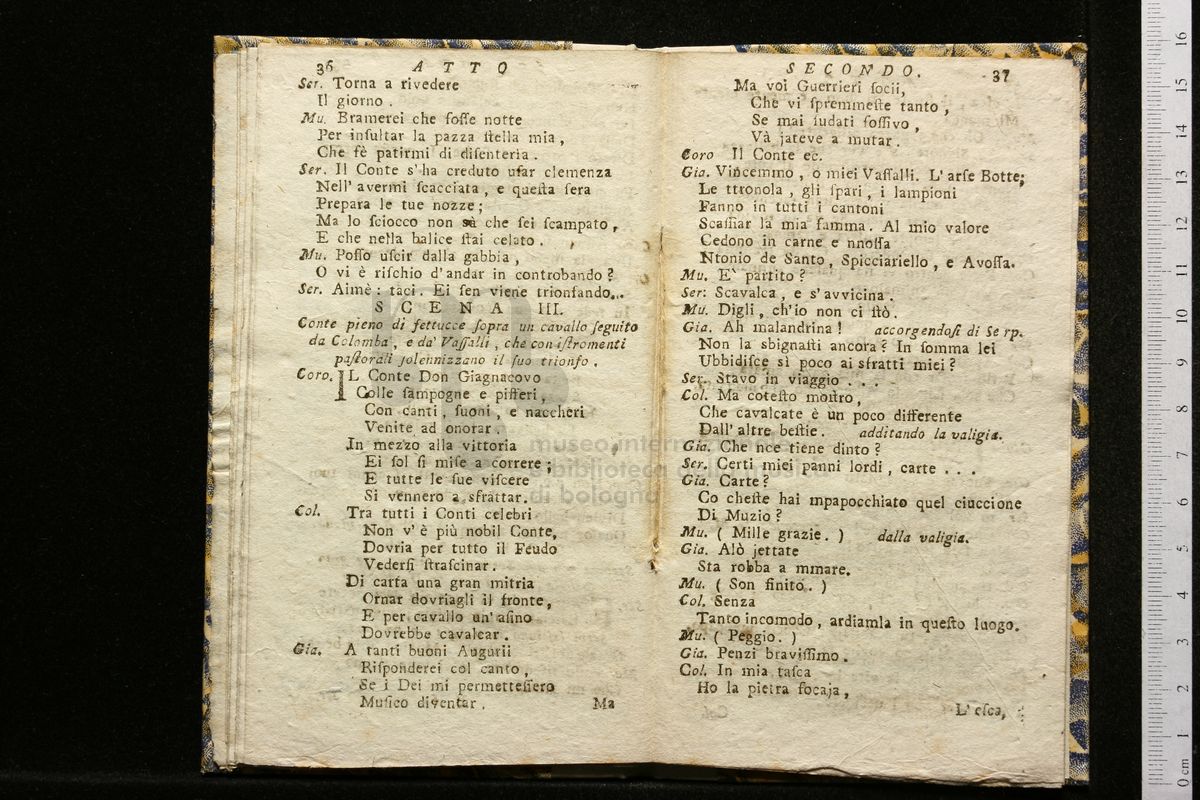 36 ATTO
Ser. Torna a rivedere
Il giorno .
Mu. Bramerei che foſſe notte
Per inſultar la pazza ſtella mia ,
Che fè patirmi di diſenteria .
Ser. Il Conte s'ha creduto uſar clemenza
Nell' avermi ſcacciata , e queſta ſera
Prepara le tue nozze ;
Ma lo ſciocco non sà che ſei ſcampato ,
E che nella balice ſtai celato .
Mu. Poſſo uſcir dalla gabbia ,
O vi è riſchio d'andar in controbando ?
Ser. Aimè : taci . Ei ſen viene trionfando...
SCENA III.
Conte pieno di fettucce ſopra un cavallo ſeguito
da Colomba , e da' Vaſſalli , che con iſtromenti
paſtorali ſolennizzano il ſuo trionfo .
Coro. IL Conte Don Giagnacovo
Colle ſampogne e pifferi ,
Con canti , ſuoni , e naccheri
Venite ad onorar .
In mezzo alla vittoria
Ei ſol ſi miſe a correre ;
E tutte le ſue viſcere
Si vennero a sfrattar.
Col. Tra tutti i Conti celebri
Non v' è più nobil Conte,
Dovria per tutto il Feudo
Vederſi ſtraſcinar .
Di carta una gran mitria
Ornar dovriagli il fronte,
E per cavallo un' aſino
Dovrebbe cavalcar .
Gia. A tanti buoni Augurii
Riſponderei col canto ,
Se i Dei mi permetteſſero
Muſico diventar .
Ma
SECONDO. 37
Ma voi Guerrieri ſocii,
Che vi ſpremmeſte tanto ,
Se mai ſudati foſſivo ,
Và jateve a mutar .
Coro Il Conte ec.
Gia. Vincemmo , o miei Vaſſalli. L' arſe Botte;
Le ttronola , gli ſpari , i lampioni
Fanno in tutti i cantoni
Scaſſiar la mia famma . Al mio valore
Cedono in carne e nnoſſa
Ntonio de Santo , Spicciariello , e Avoſſa.
Mu. E' partito ?
Ser: Scavalca , e s' avvicina .
Mu. Digli , ch'io non ci ſtò .
Gia. Ah malandrina ! accorgendoſi di Serp.
Non la sbignaſti ancora ? In ſomma lei
Ubbidiſce sì poco ai sfratti miei ?
Ser. Stavo in viaggio . . .
Col. Ma coteſto moſtro ,
Che cavalcate è un poco differente
Dall' altre beſtie . additando la valigia.
Gia. Che nce tiene dinto ?
Ser. Certi miei panni lordi , carte . . .
Gia. Carte ?
Co cheſte hai mpapocchiato quel ciuccione
Di Muzio ?
Mu. ( Mille grazie . ) dalla valigia.
Gia. Alò jettate
Sta robba a mmare.
Mu. ( Son finito . )
Col. Senza
Tanto incomodo , ardiamla in queſto luogo.
Mu. ( Peggio . )
Gia. Penzi braviſſimo .
Col. In mia taſca
Ho la pietra focaja ,
L' eſca,
museo internazionale
e biblioteca della musica
di bologna
0 cm 1 2 3 4 5 6 7 8 9 10 11 12 13 14 15 16